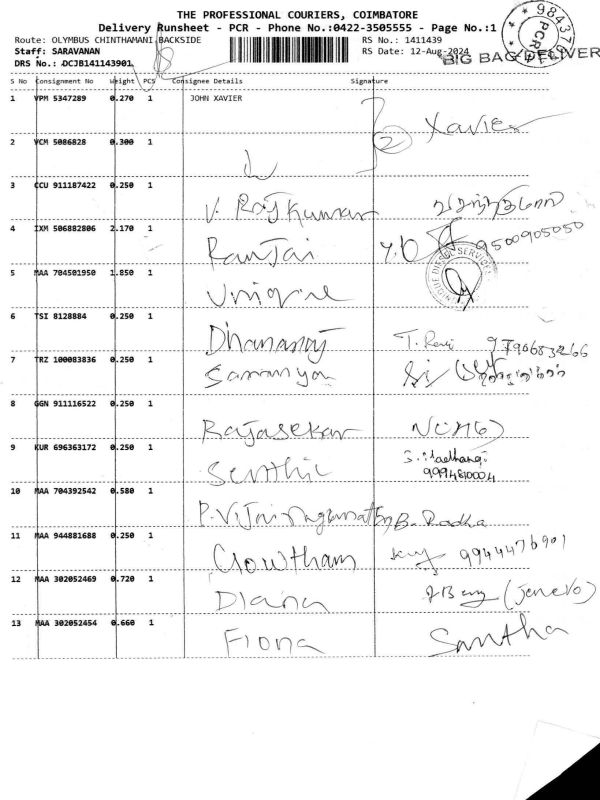 THE PROFESSIONAL COURIERS, COIMBATORE
Delivery Runsheet - PCR - Phone No.:0422-3505555 - Page No.:1
Route: OLYMBUS CHINTHAMANI BACKSIDE RS No.: 1411439
Staff: SARAVANAN RS Date: 12-Aug-2024
DRS No.: DCJB141143901
BIG BAG DELIVER
PCR
S No Consignment No Weight PCS Consignee Details Signature
1 VPM 5347289 0.270 1 JOHN XAVIER
2 Xavier
2 VCM 5086828 0.300 1
3 CCU 911187422 0.250 1
V. Rajkumar
4 IXM 506882806 2.170 1
9500905050
5 MAA 704501950 1.850 1
Unique
6 TSI 8128884 0.250 1
Dhananaj
7 TRZ 100083836 0.250 1
8 GGN 911116522 0.250 1
Rajasekar
9 KUR 696363172 0.250 1
Senthil 9994810004
10 MAA 704392542 0.580 1
B. Radha
11 MAA 944881688 0.250 1
Gowtham 9944476901
12 MAA 302052469 0.720 1
Diana
13 MAA 302052454 0.660 1
Fiona Santha